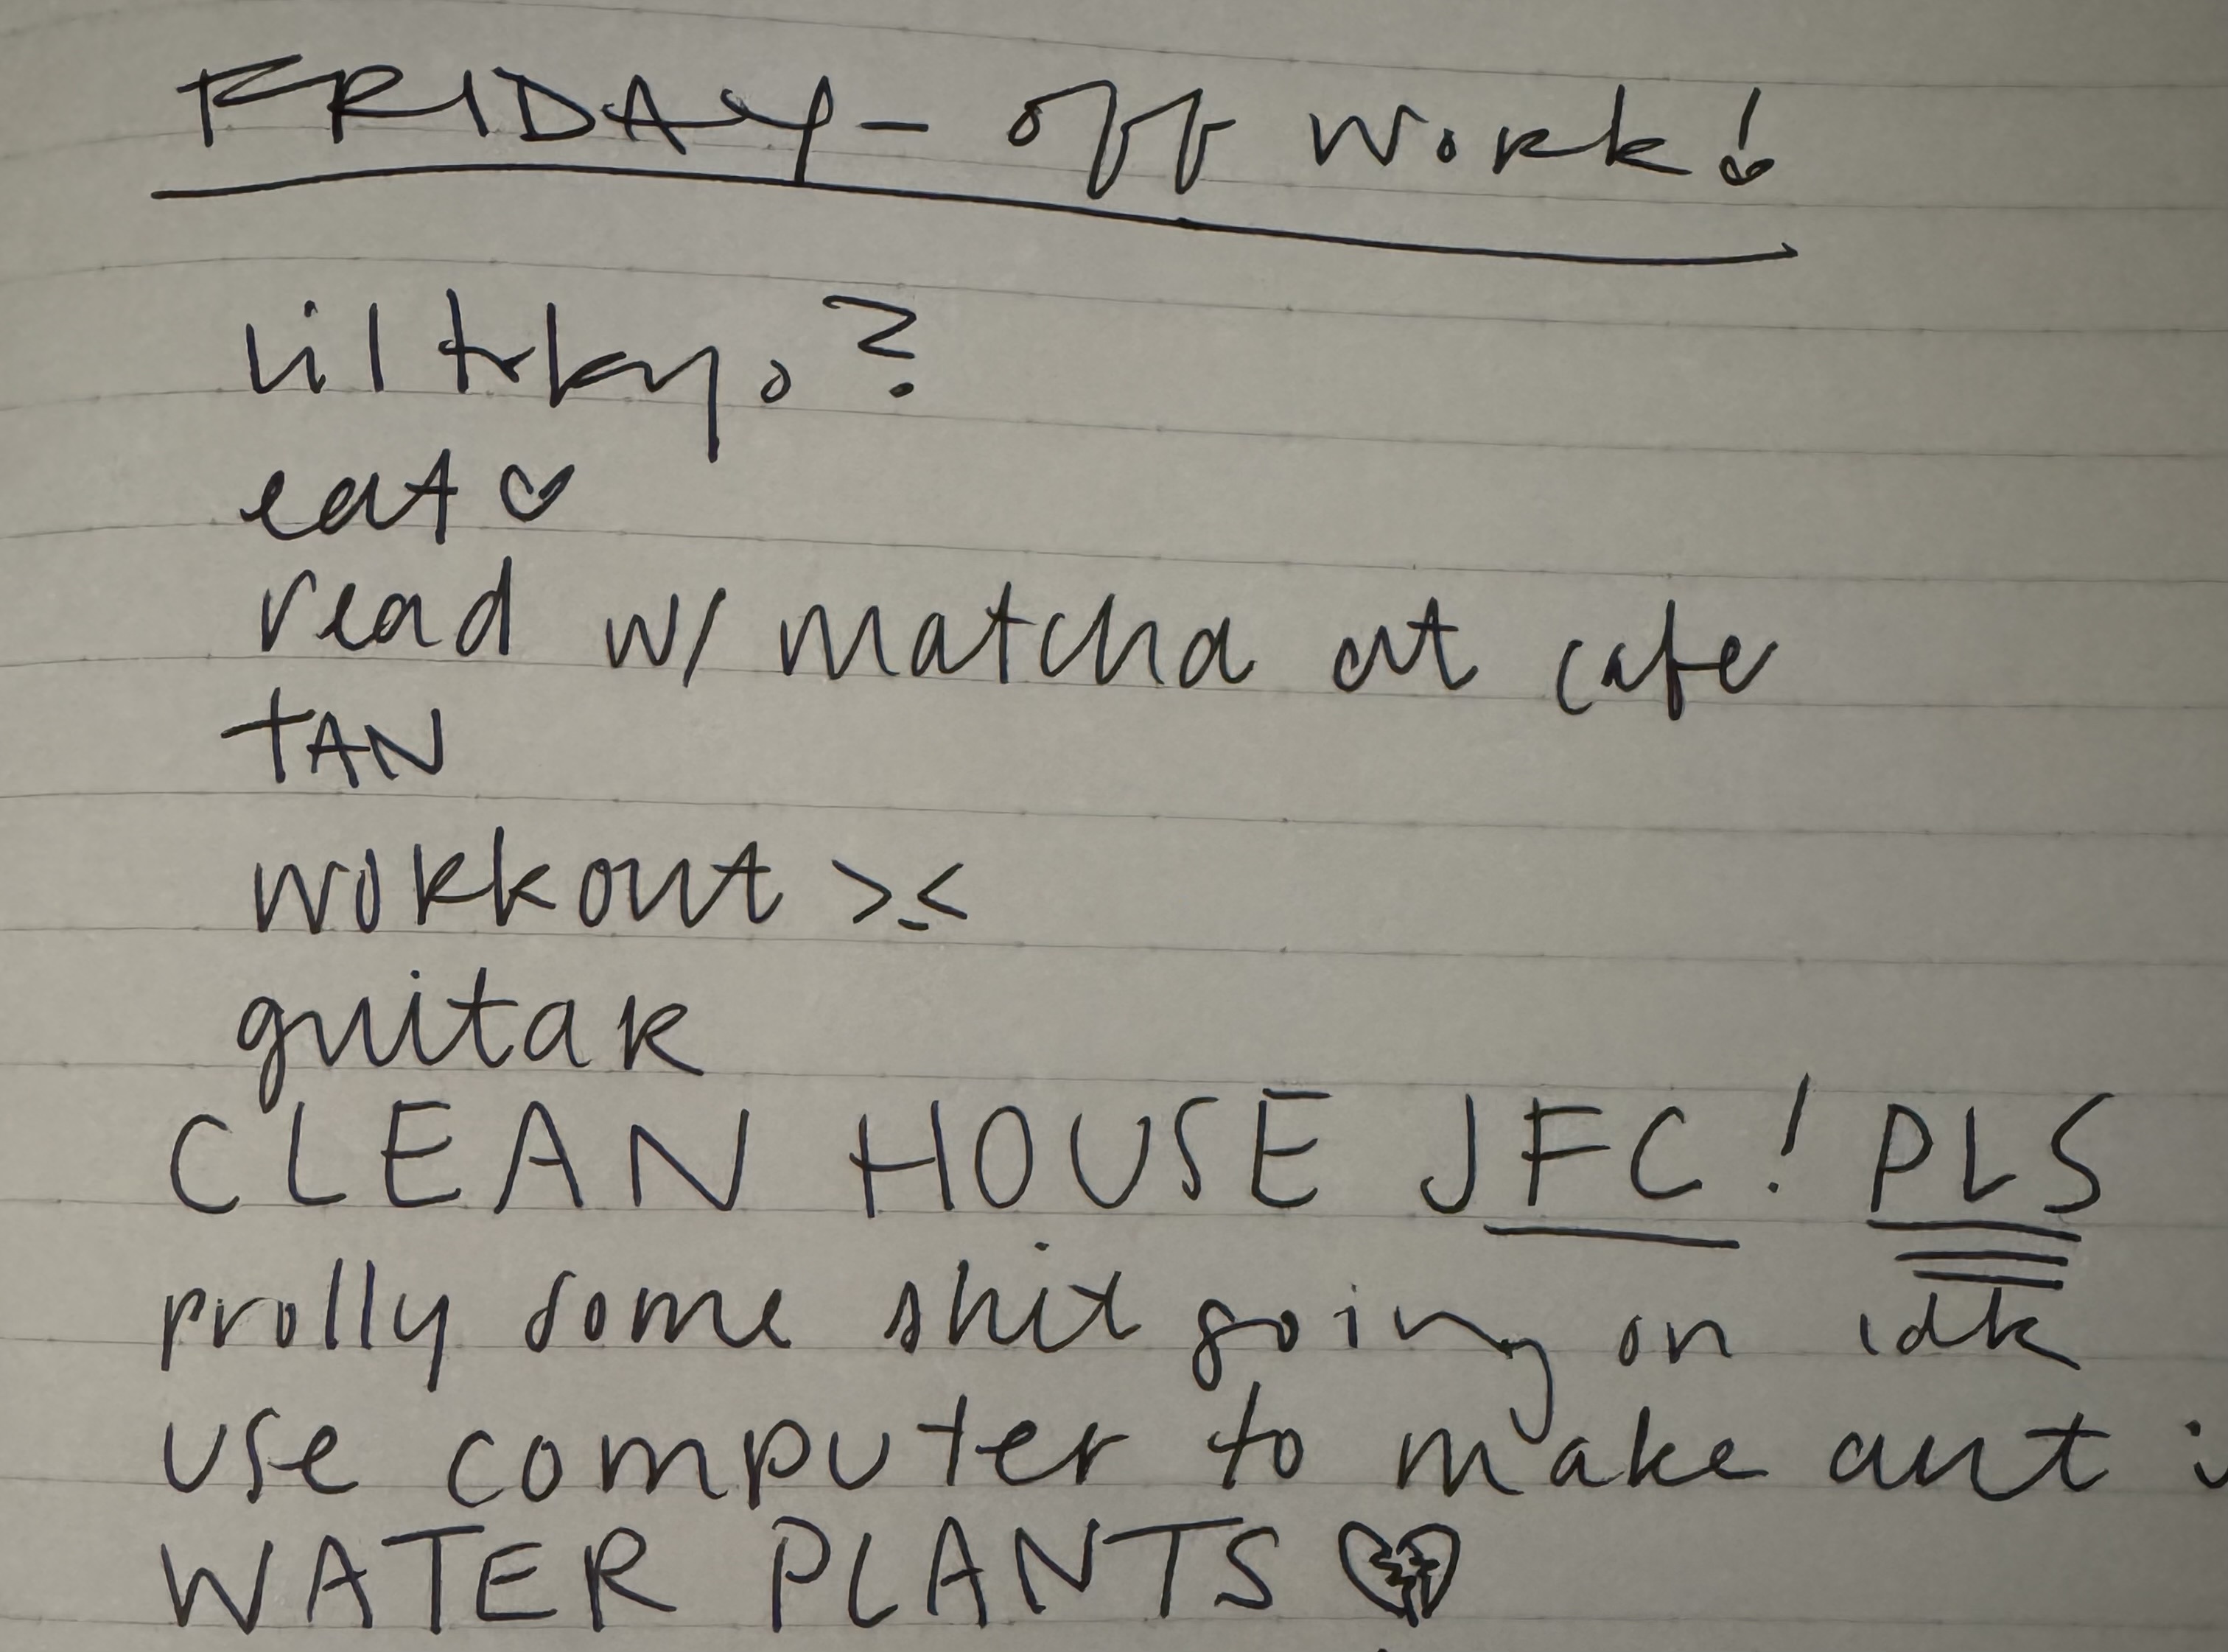 FRIDAY - off work!
lil tokyo?
eat ♡
read w/ matcha at cafe
TAN
workout >.<
guitar
CLEAN HOUSE JFC! PLS
prolly some shit going on idk
use computer to make art
WATER PLANTS 💔